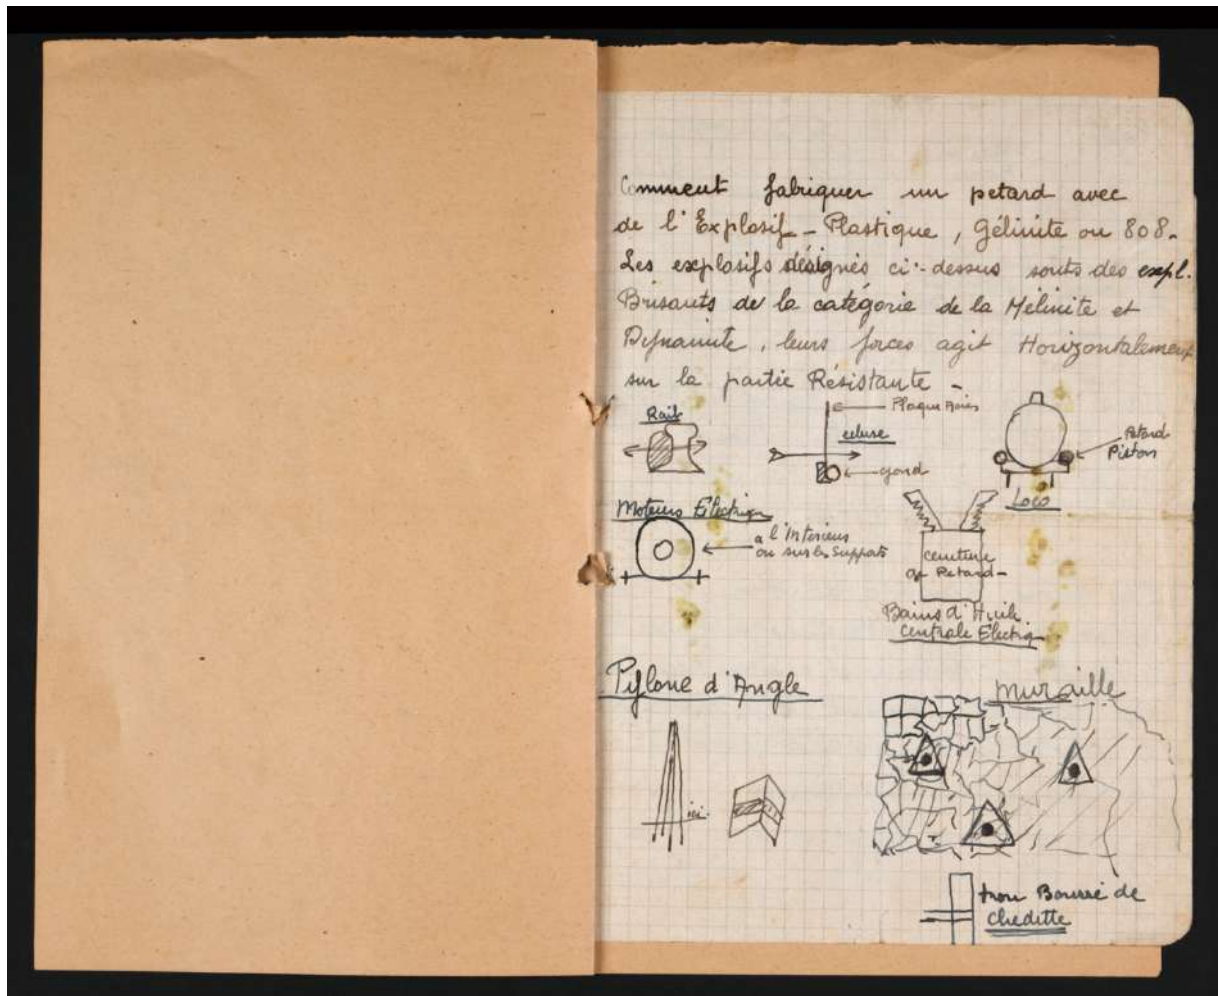 Comment fabriquer un petard avec
de l'Explosif - Plastique, Gélinite ou 808 -
Les explosifs désignés ci-dessus sonts des expl.
Brisants de la catégorie de la Mélinite et
Dynamite, leurs forces agit Horizontalement
sur la partie Résistante -
Rail
Plaque
écluse
gond
Petard
Piston
Loco
Moteurs Electriq
a l'Interieur
ou sur les Supports
ceinture
de Petard -
Bains d'Huile.
Centrale Electriq
Pylone d'Angle
ici
muraille
trou Bourré de
Cheditte